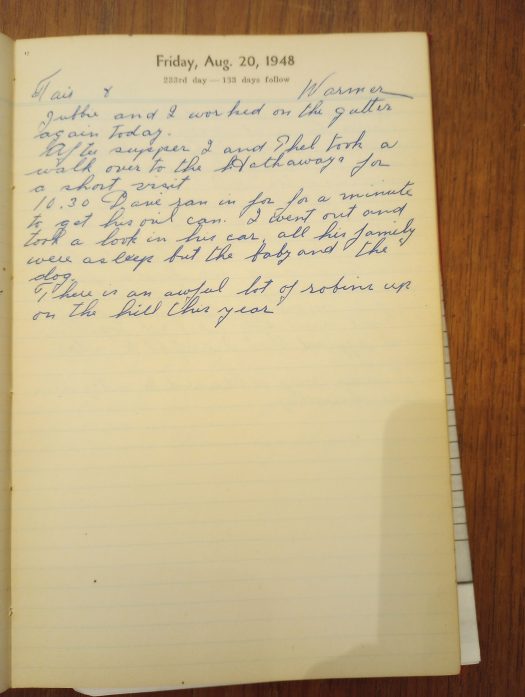 Friday, Aug. 20, 1948
233rd day — 133 days follow
Fair & Warmer
and I worked on the gutter
again today.
After supper I and Ethel took a
walk over to the Hathaways for
a short visit
10.30 Dave ran in for for a minute
to get his oil can. I went out and
took a look in his car, all his family
were asleep but the baby and the
dog.
There is an awful lot of robins up
on the hill this year